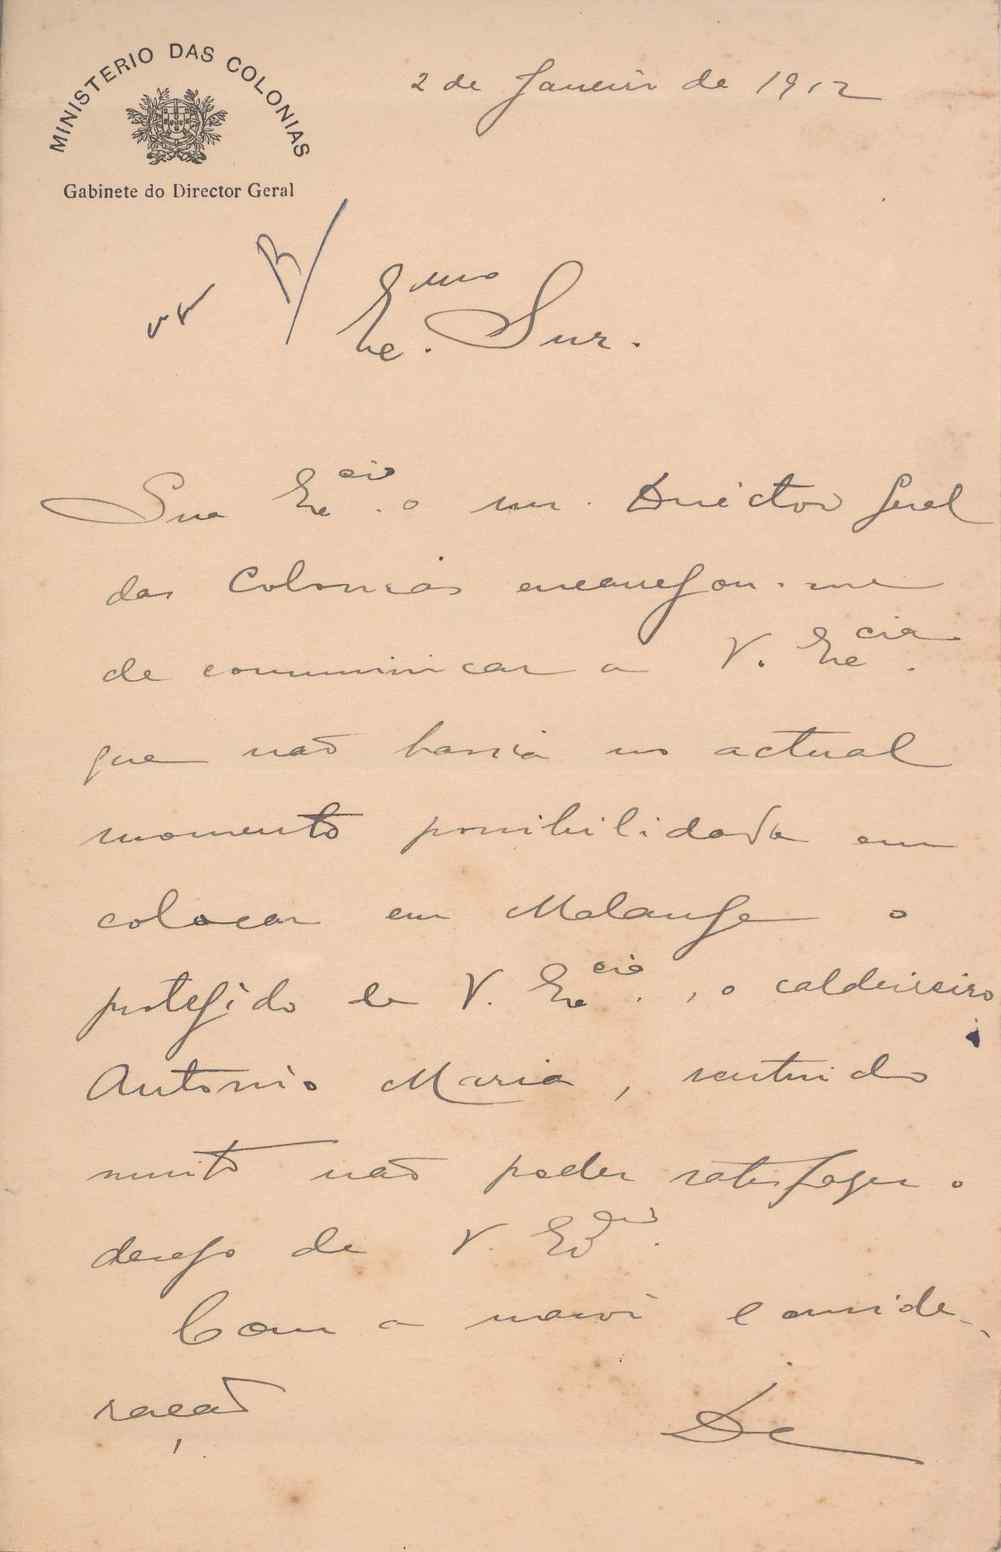 MINISTERIO DAS COLONIAS
Gabinete do Director Geral
2 de Janeiro de 1912
Exmo. Snr.
Sua Excia. o snr. Director Geral
das Colonias encarregou-me
de communicar a V. Excia.
que não havia no actual
momento possibilidade em
colocar em Malange o
protegido de V. Excia., o caldeireiro
Antonio Maria, sentindo
muito não poder satisfazer o
desejo de V. Excia.
Com a maior conside-
ração
De